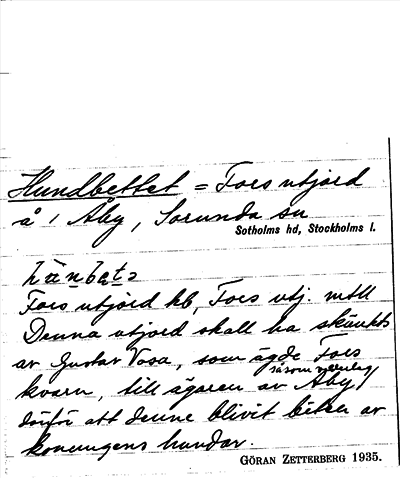 Hundbettet = Fors utjord
å 1 Åby, Sorunda sn
Sotholms hd, Stockholms l.
Fors utjord kb, Fors utj. mtll
Denna utjord skall ha skänkts
av Gustav Vasa, som ägde Fors
såsom vederlag
kvarn, till ägaren av Åby
därför att denne blivit biten av
konungens hundar.
GÖRAN ZETTERBERG 1935.